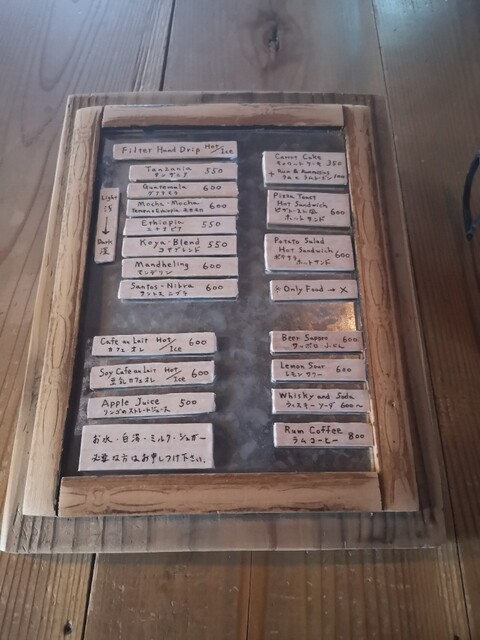 Filter Hand Drip Hot/Ice
Light
浅
↓
Dark
深
Tanzania 550
タンザニア
Guatemala 600
グアテマラ
Mocha-Mocha 600
Yemen×Ethiopia モカモカ
Ethiopia 550
エチオピア
Koya-Blend 550
コヤブレンド
Mandheling 600
マンデリン
Santos-Nibra 600
サントス ニブラ
Cafe au Lait Hot/Ice 600
カフェオレ
Soy Cafe au Lait Hot/Ice 600
豆乳カフェオレ
Apple Juice 500
リンゴのストレートジュース
お水・白湯・ミルク・シュガー
必要な方はお申しつけ下さい。
Carrot Cake 350
キャロットケーキ
+ Rum &
Pizza Toast
Hot Sandwich 600
ピザトースト風
ホットサンド
Potato Salad
Hot Sandwich 600
ポテサラ
ホットサンド
※Only Food → ×
Beer Sapporo 600
サッポロ
Lemon Sour 600
レモンサワー
Whisky and Soda
ウィスキーソーダ 600〜
Rum Coffee 800
ラムコーヒー